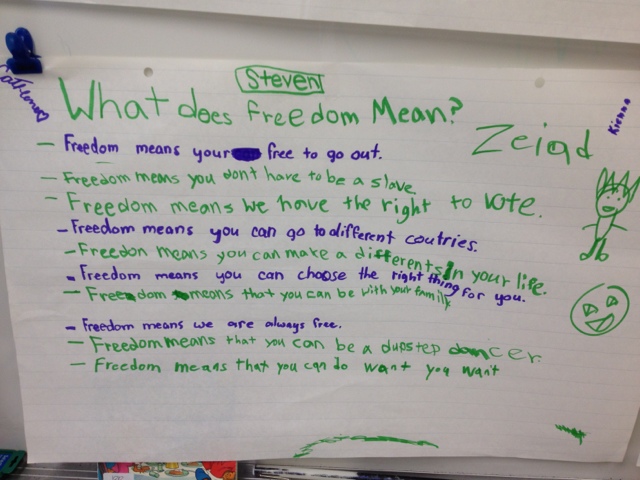 Steven
What does freedom Mean?
Kienna
Zeiad
— Freedom means your free to go out.
— Freedom means you don't have to be a slave
— Freedom means we have the right to vote.
- Freedom means you can go to different coutries.
- Freedon means you can make a differents in your life.
- Freedom means you can choose the right thing for you.
- Freedom means that you can be with your family
- Freedom means we are always free.
- Freedom means that you can be a dupstep dancer.
- Freedom means that you can do want you want